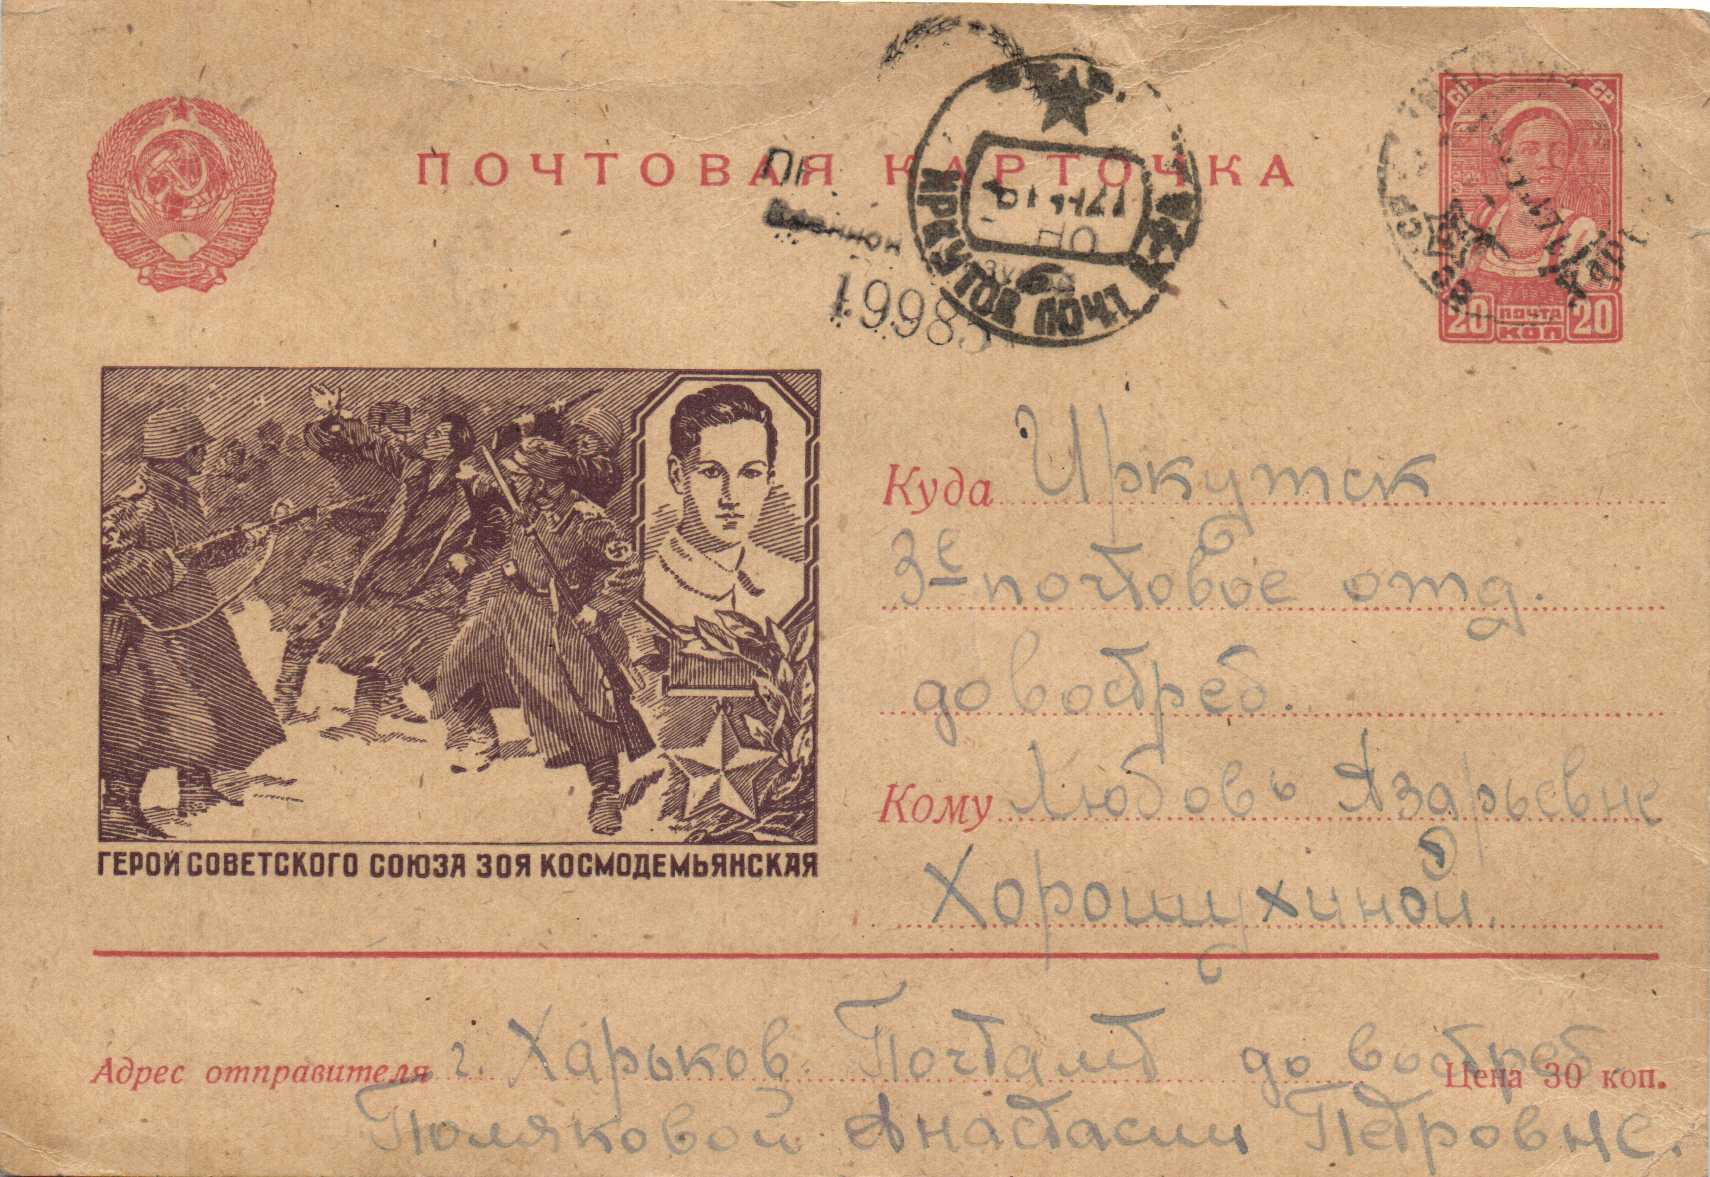 ПОЧТОВАЯ КАРТОЧКА
СС СР
20 ПОЧТА 20
КОП
19983
ГЕРОЙ СОВЕТСКОГО СОЮЗА ЗОЯ КОСМОДЕМЬЯНСКАЯ
Куда Иркутск
3е почтовое отд.
до востреб.
Кому Любовь Азарьевне
Хорошухиной.
Адрес отправителя г. Харьков. Почтамт до востреб
Цена 30 коп.
Поляковой Анастасии Петровне.